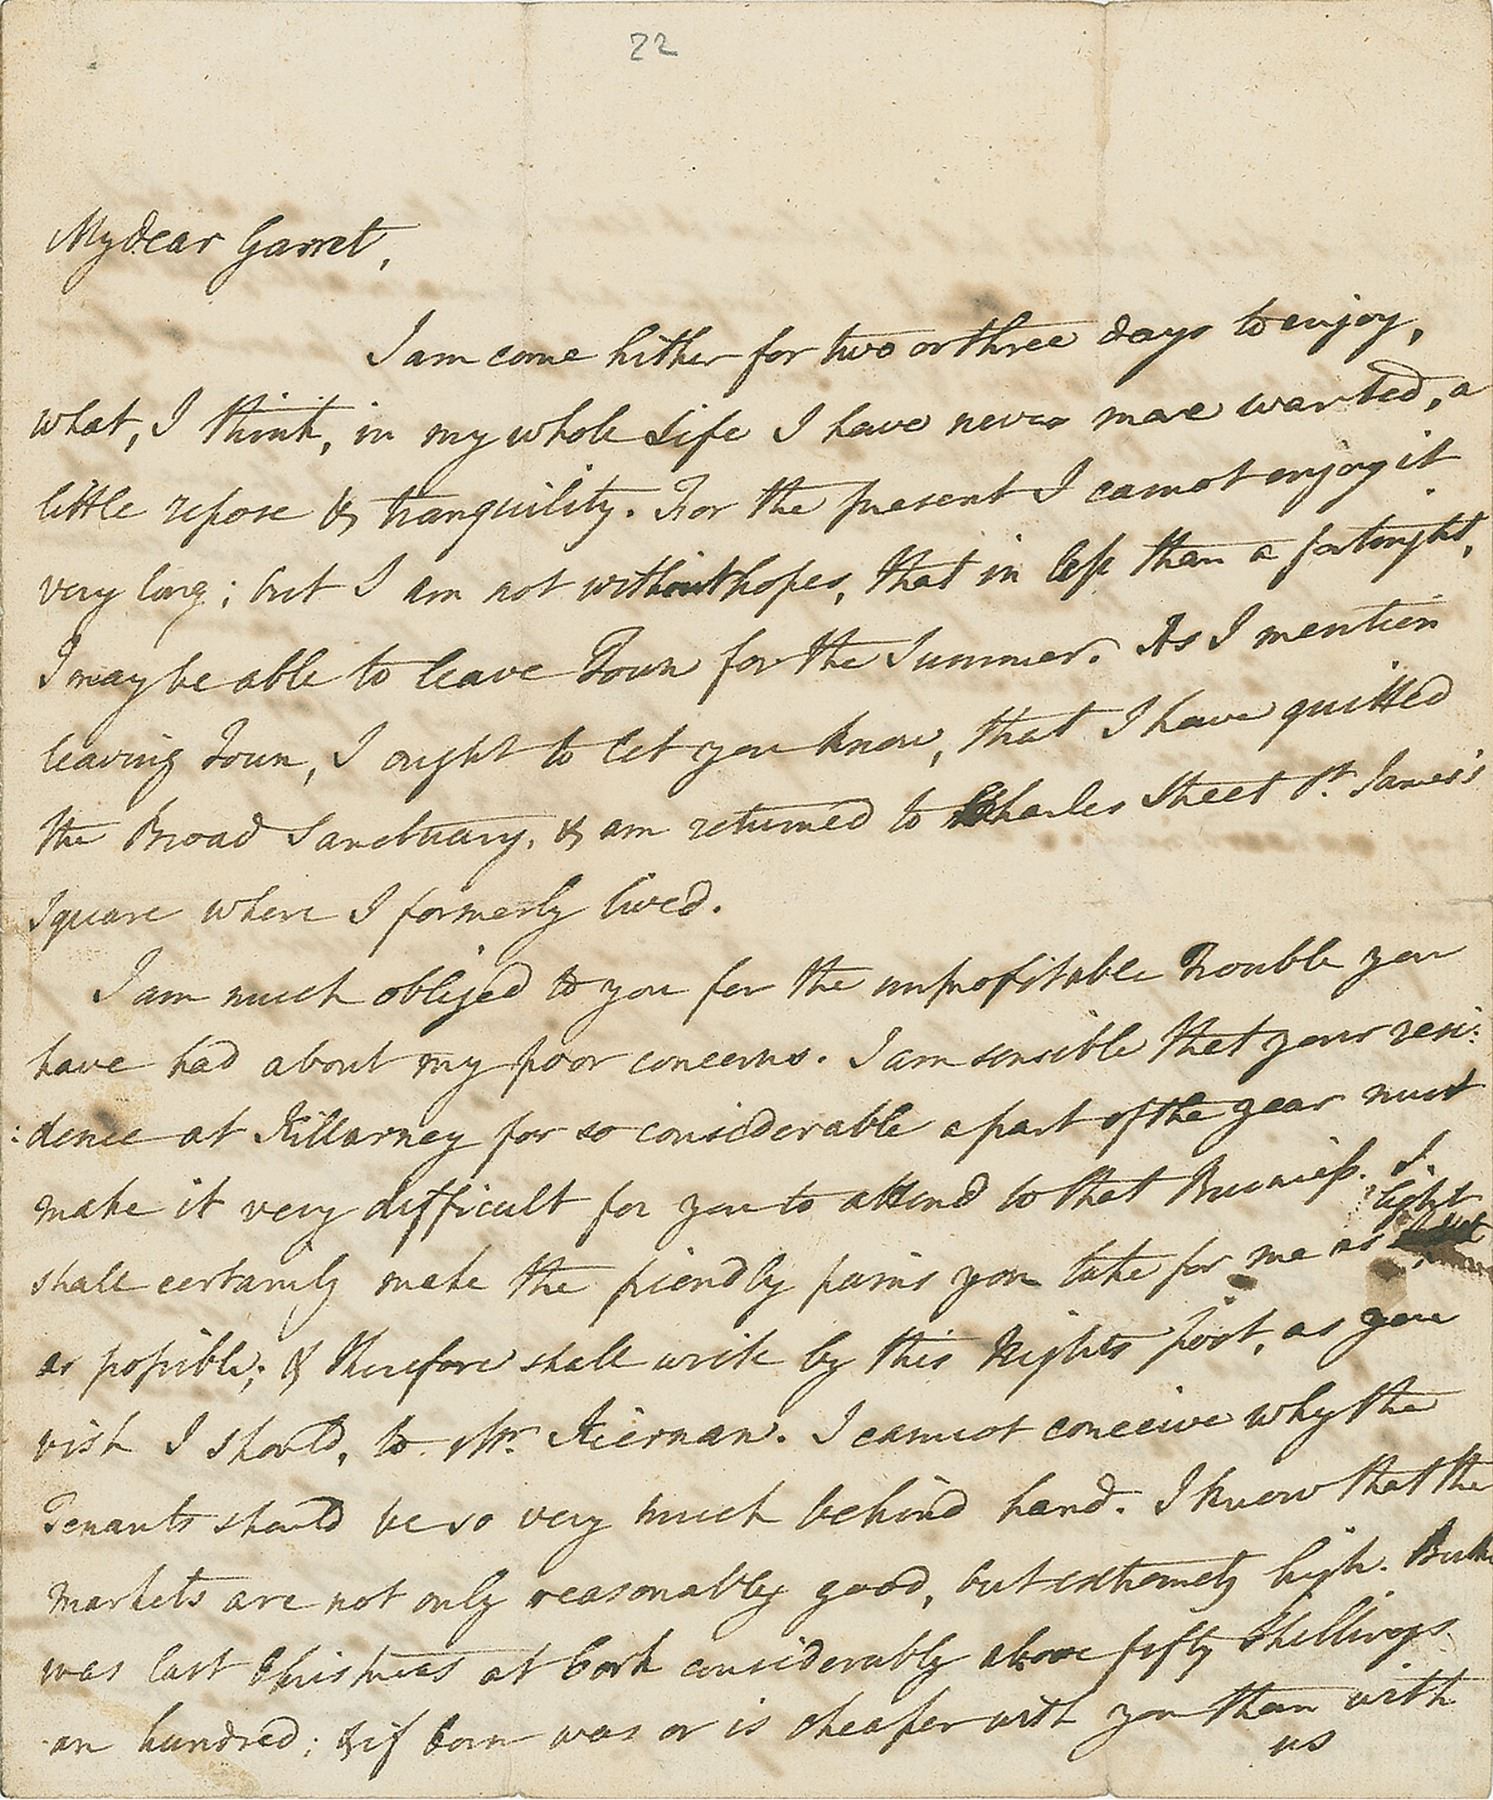 22
My dear Garret,
I am come hither for two or three days to enjoy,
what, I think, in my whole Life I have never more wanted, a
little repose & tranquility. For the present I cannot enjoy it
very long; but I am not without hopes, that in less than a fortnight,
I may be able to leave Town for the Summer. As I mention
leaving Town, I ought to let you know, that I have quitted
the Broad Sanctuary, & am returned to Charles Street St. James's
Square where I formerly lived.
I am much obliged to you for the unprofitable Trouble you
have had about my poor concerns. I am sensible that your resi:
:dence at Killarney for so considerable a part of the year must
make it very difficult for you to attend to that Business. I
shall certainly make the friendly pains you take for me as light
as possible; & therefore shall write by this Nights post, as you
wish I should, to Mr. Kiernan. I cannot conceive why the
Tenants should be so very much behind hand. I know that the
markets are not only reasonably good, but extremely high. Butter
was last Christmas at Cork considerably above fifty Shillings
an hundred; & if Corn was or is cheaper with you than with
us